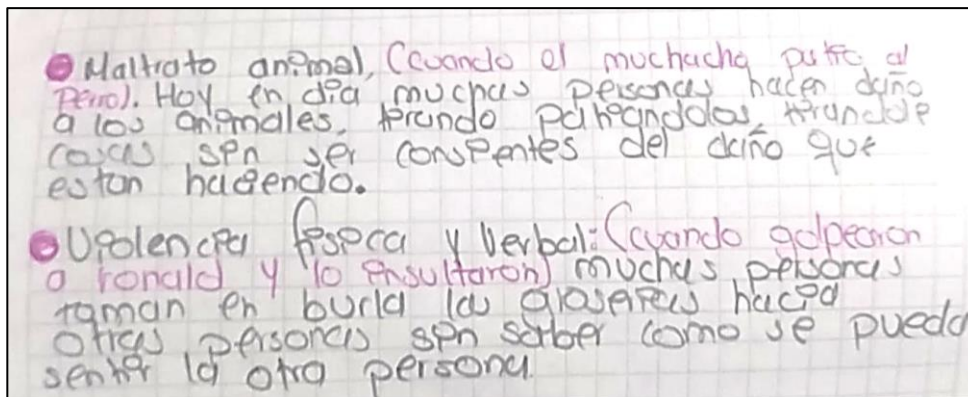 Maltrato animal, (cuando el muchacho patio al
perro). Hoy en dia muchas personas hacen daño
a los animales, pateandolos, tirandole
cosas sin ser consientes del daño que
estan haciendo.
Violencia fisica y Verbal: (cuando golpearon
a ronald y lo insultaron) muchas personas
toman en burla las groserias hacia
otras personas sin saber como se pueda
sentir la otra persona.